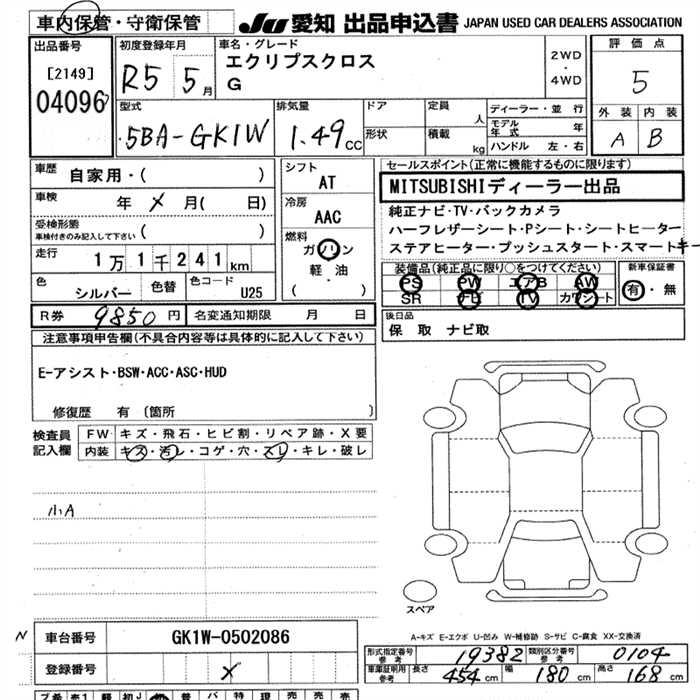 車内保管・守衛保管 JU 愛知 出品申込書 JAPAN USED CAR DEALERS ASSOCIATION
出品番号 [2149] 04096
初度登録年月 R5 5月
車名・グレード エクリプスクロス G
2WD・4WD
評価点 5
外装 内装 A B
型式 5BA-GK1W
排気量 1.49cc
ドア 形状
定員 人
積載 kg
ディーラー・並行
モデル年式 年
ハンドル 左・右
車歴 自家用・( )
車検 年 メ 月( 日)
受検形態
車検付きのみ記入して下さい ( )
走行 1万1千241km
色 シルバー 色替 色コード U25
シフト AT
冷房 AAC
燃料 ガソリン 軽・油 ( )
セールスポイント(正常に機能するものに限ります)
MITSUBISHIディーラー出品
純正ナビ・TV・バックカメラ
ハーフレザーシート・Pシート・シートヒーター
ステアヒーター・プッシュスタート・スマートキー
装備品(純正品に限り○をつけてください) 新車保証書
PS PW エアB AW 有・無
SR ナビ TV カワシート
R券 9850円 名変通知期限 月 日
後日品
保 取 ナビ取
注意事項申告欄(不具合内容等は具体的に記入して下さい)
E-アシスト・BSW・ACC・ASC・HUD
修復歴 有 〔箇所 〕
検査員記入欄
FW キズ・飛石・ヒビ割・リペア跡・X要
内装 キズ・汚レ・コゲ・穴・スレ・キレ・破レ
小A
スペア
A-キズ E-エクボ U-凹み W-補修跡 S-サビ C-腐食 XX-交換済
N 車台番号 GK1W-0502086
登録番号 メ
形式指定番号 参考 19382 類別区分番号 参考 0104
車庫証明用参考 長さ 454cm 幅 180cm 高さ 168cm